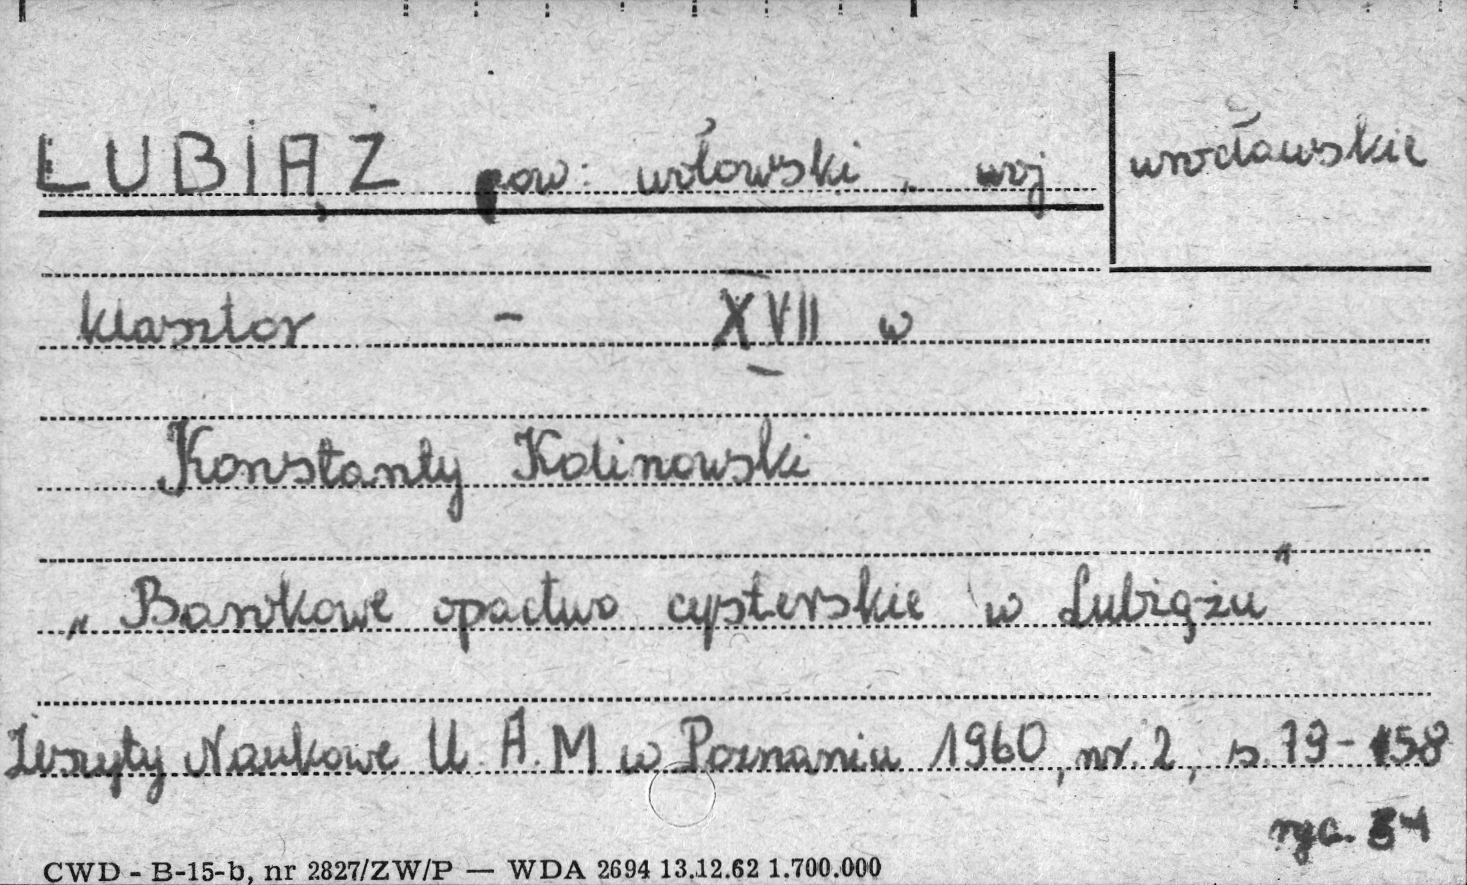 LUBIĄŻ pow: wołowski, woj wrocławskie
klasztor - XVII w
Konstanty Kalinowski
„Barokowe opactwo cysterskie w Lubiążu"
Zeszyty Naukowe U.A.M w Poznaniu 1960, nr. 2, s. 79-158
ryc. 84
CWD - B-15-b, nr 2827/ZW/P — WDA 2694 13.12.62 1.700.000